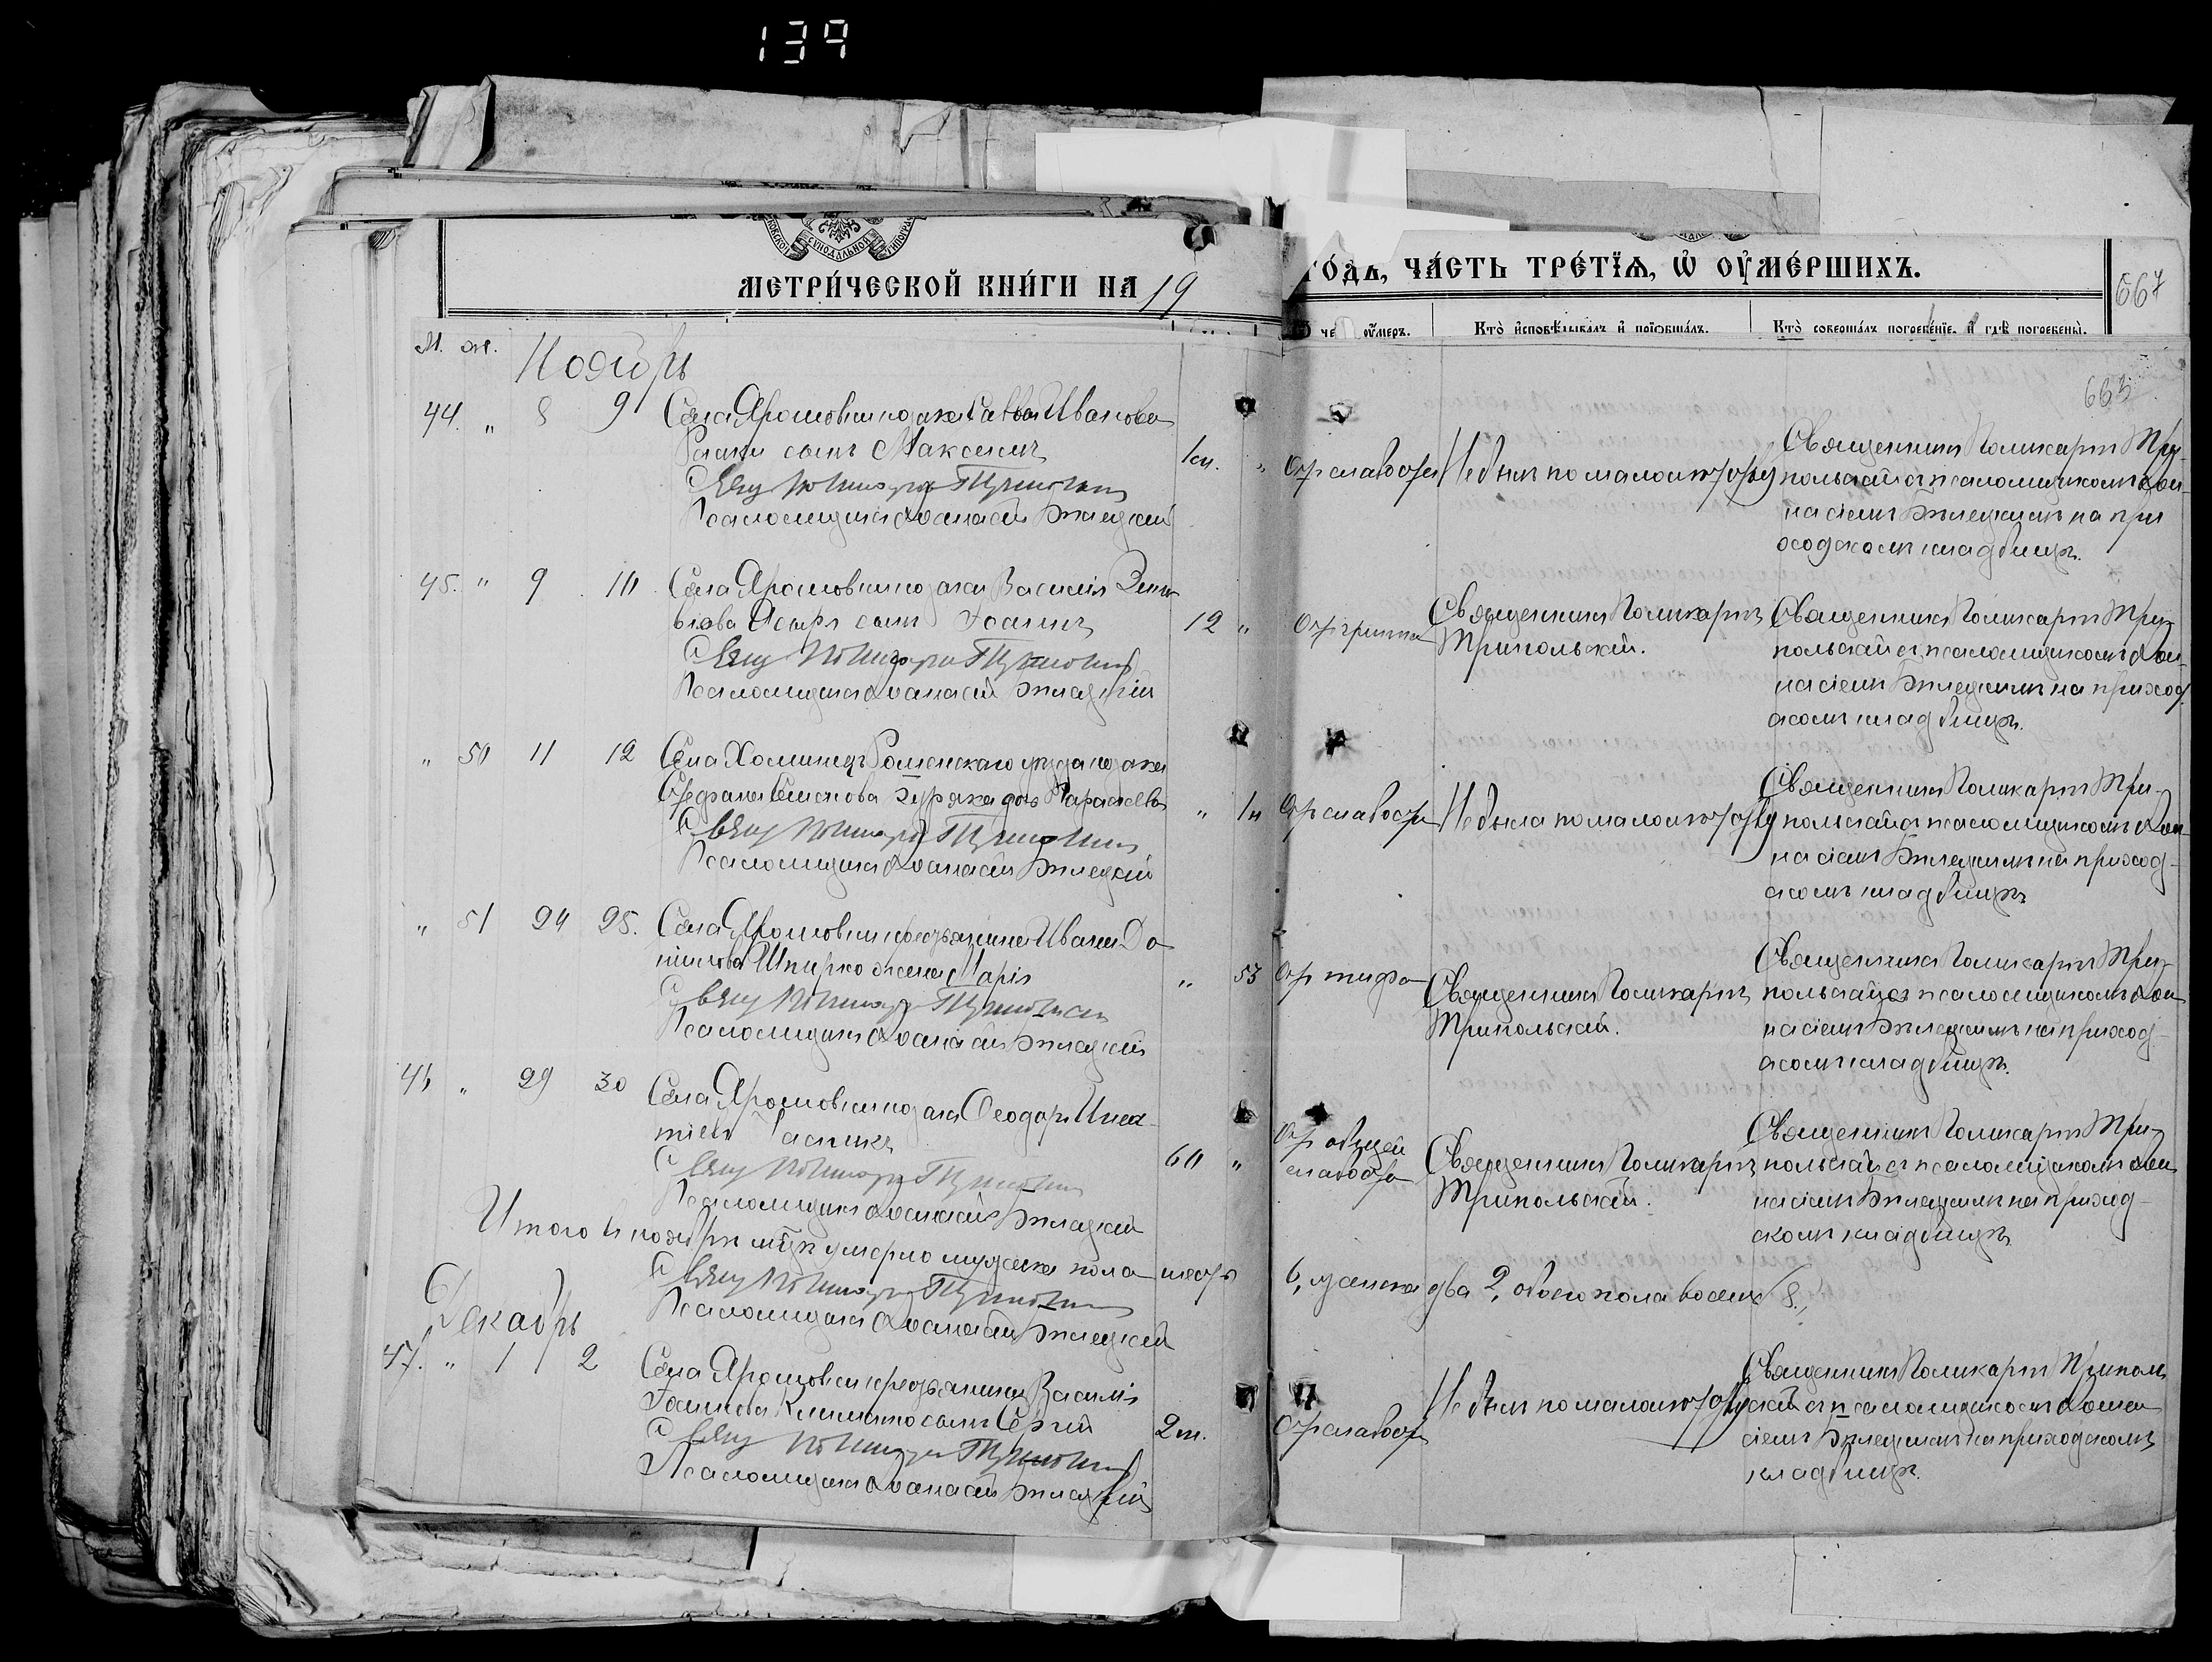 139
МЕТРИ́ЧЕСКОЙ КНИ́ГИ НА 19
ГО́ДЪ, ЧА́СТЬ ТРЕ́ТЇѦ, Ѡ ОУМЕ́РШИХЪ.
667
оумеръ.
Кто̀ и҆сповѣ́дывалъ и҆ прїѡбща́лъ.
Кто̀ соверша́лъ погребе́нїе, и҆ гдѣ̀ погребены̀.
М. ж.
Ноябрь
663
44. " 8 9
Села Ярошовки козака Саввы Иванова
сынъ Максимъ
Свящ Поликарпъ Трипольскій
Псаломщикъ Аѳанасій Бѣлецкій
1м. "
От слабости
Не былъ по малолѣтству
Священникъ Поликарпъ Три-
польскій съ псаломщикомъ Аѳа-
насіемъ Бѣлецкимъ на при
ходскомъ кладбищѣ.
45. " 9 10
Села Ярошовки козака Василія Зинь
віева сынъ Іоаннъ
Свящ Поликарпъ Трипольскій
Псаломщикъ Аѳанасій Бѣлецкій
12 "
Священникъ Поликарпъ
Трипольскій.
Священникъ Поликарпъ Три-
польскій съ псаломщикомъ Аѳа-
насіемъ Бѣлецкимъ на приход
скомъ кладбищѣ.
" 50 11 12
Села Хоминецъ Роменскаго уѣзда козака
Стефана Симонова дочь Параскева
Свящ Поликарпъ Трипольскій
Псаломщикъ Аѳанасій Бѣлецкій
" 1н
От слабости
Не была по малолѣтству
Священникъ Поликарпъ Три-
польскій съ псаломщикомъ Аѳа-
насіемъ Бѣлецкимъ на приход-
скомъ кладбищѣ
" 51 24 25.
Села Ярошовки крестьянина Ивана До
Шпирко жена Марія
Свящ Поликарпъ Трипольскій
Псаломщикъ Аѳанасій Бѣлецкій
" 53
От тифа
Священникъ Поликарпъ
Трипольскій.
Священникъ Поликарпъ Три-
польскій съ псаломщикомъ Аѳа
насіемъ Бѣлецкимъ на приход-
скомъ кладбищѣ.
46 " 29 30
Села Ярошовки козакъ Ѳеодоръ Игна-
тіевъ
Свящ Поликарпъ Трипольскій
Псаломщикъ Аѳанасій Бѣлецкій
60 "
От общей
слабости
Священникъ Поликарпъ
Трипольскій.
Священникъ Поликарпъ Три-
польскій съ псаломщикомъ Аѳа
насіемъ Бѣлецкимъ на приход-
скомъ кладбищѣ
Итого въ ноябрѣ мцѣ умерло мужеска пола шесть 6, женска два 2, обоего пола восемь 8.
Свящ Поликарпъ Трипольскій
Псаломщикъ Аѳанасій Бѣлецкій
Декабрь
47. " 1 2
Села Ярошовки крестьянина Василія
сынъ Сергій
Свящ Поликарпъ Трипольскій
Псаломщикъ Аѳанасій Бѣлецкій
2м.
От слабост
Не былъ по малолѣтству
Священникъ Поликарпъ Триполь
скій съ псаломщикомъ Аѳана
сіемъ Бѣлецкимъ на приходскомъ
кладбищѣ.